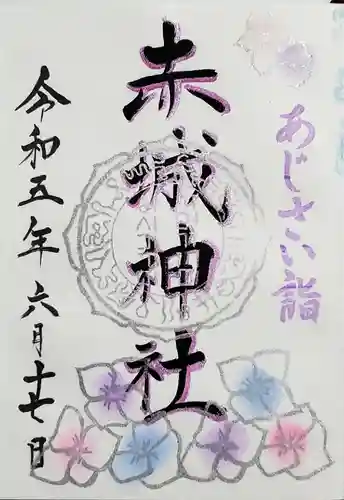 あじさい詣
赤城神社
令和五年六月十七日